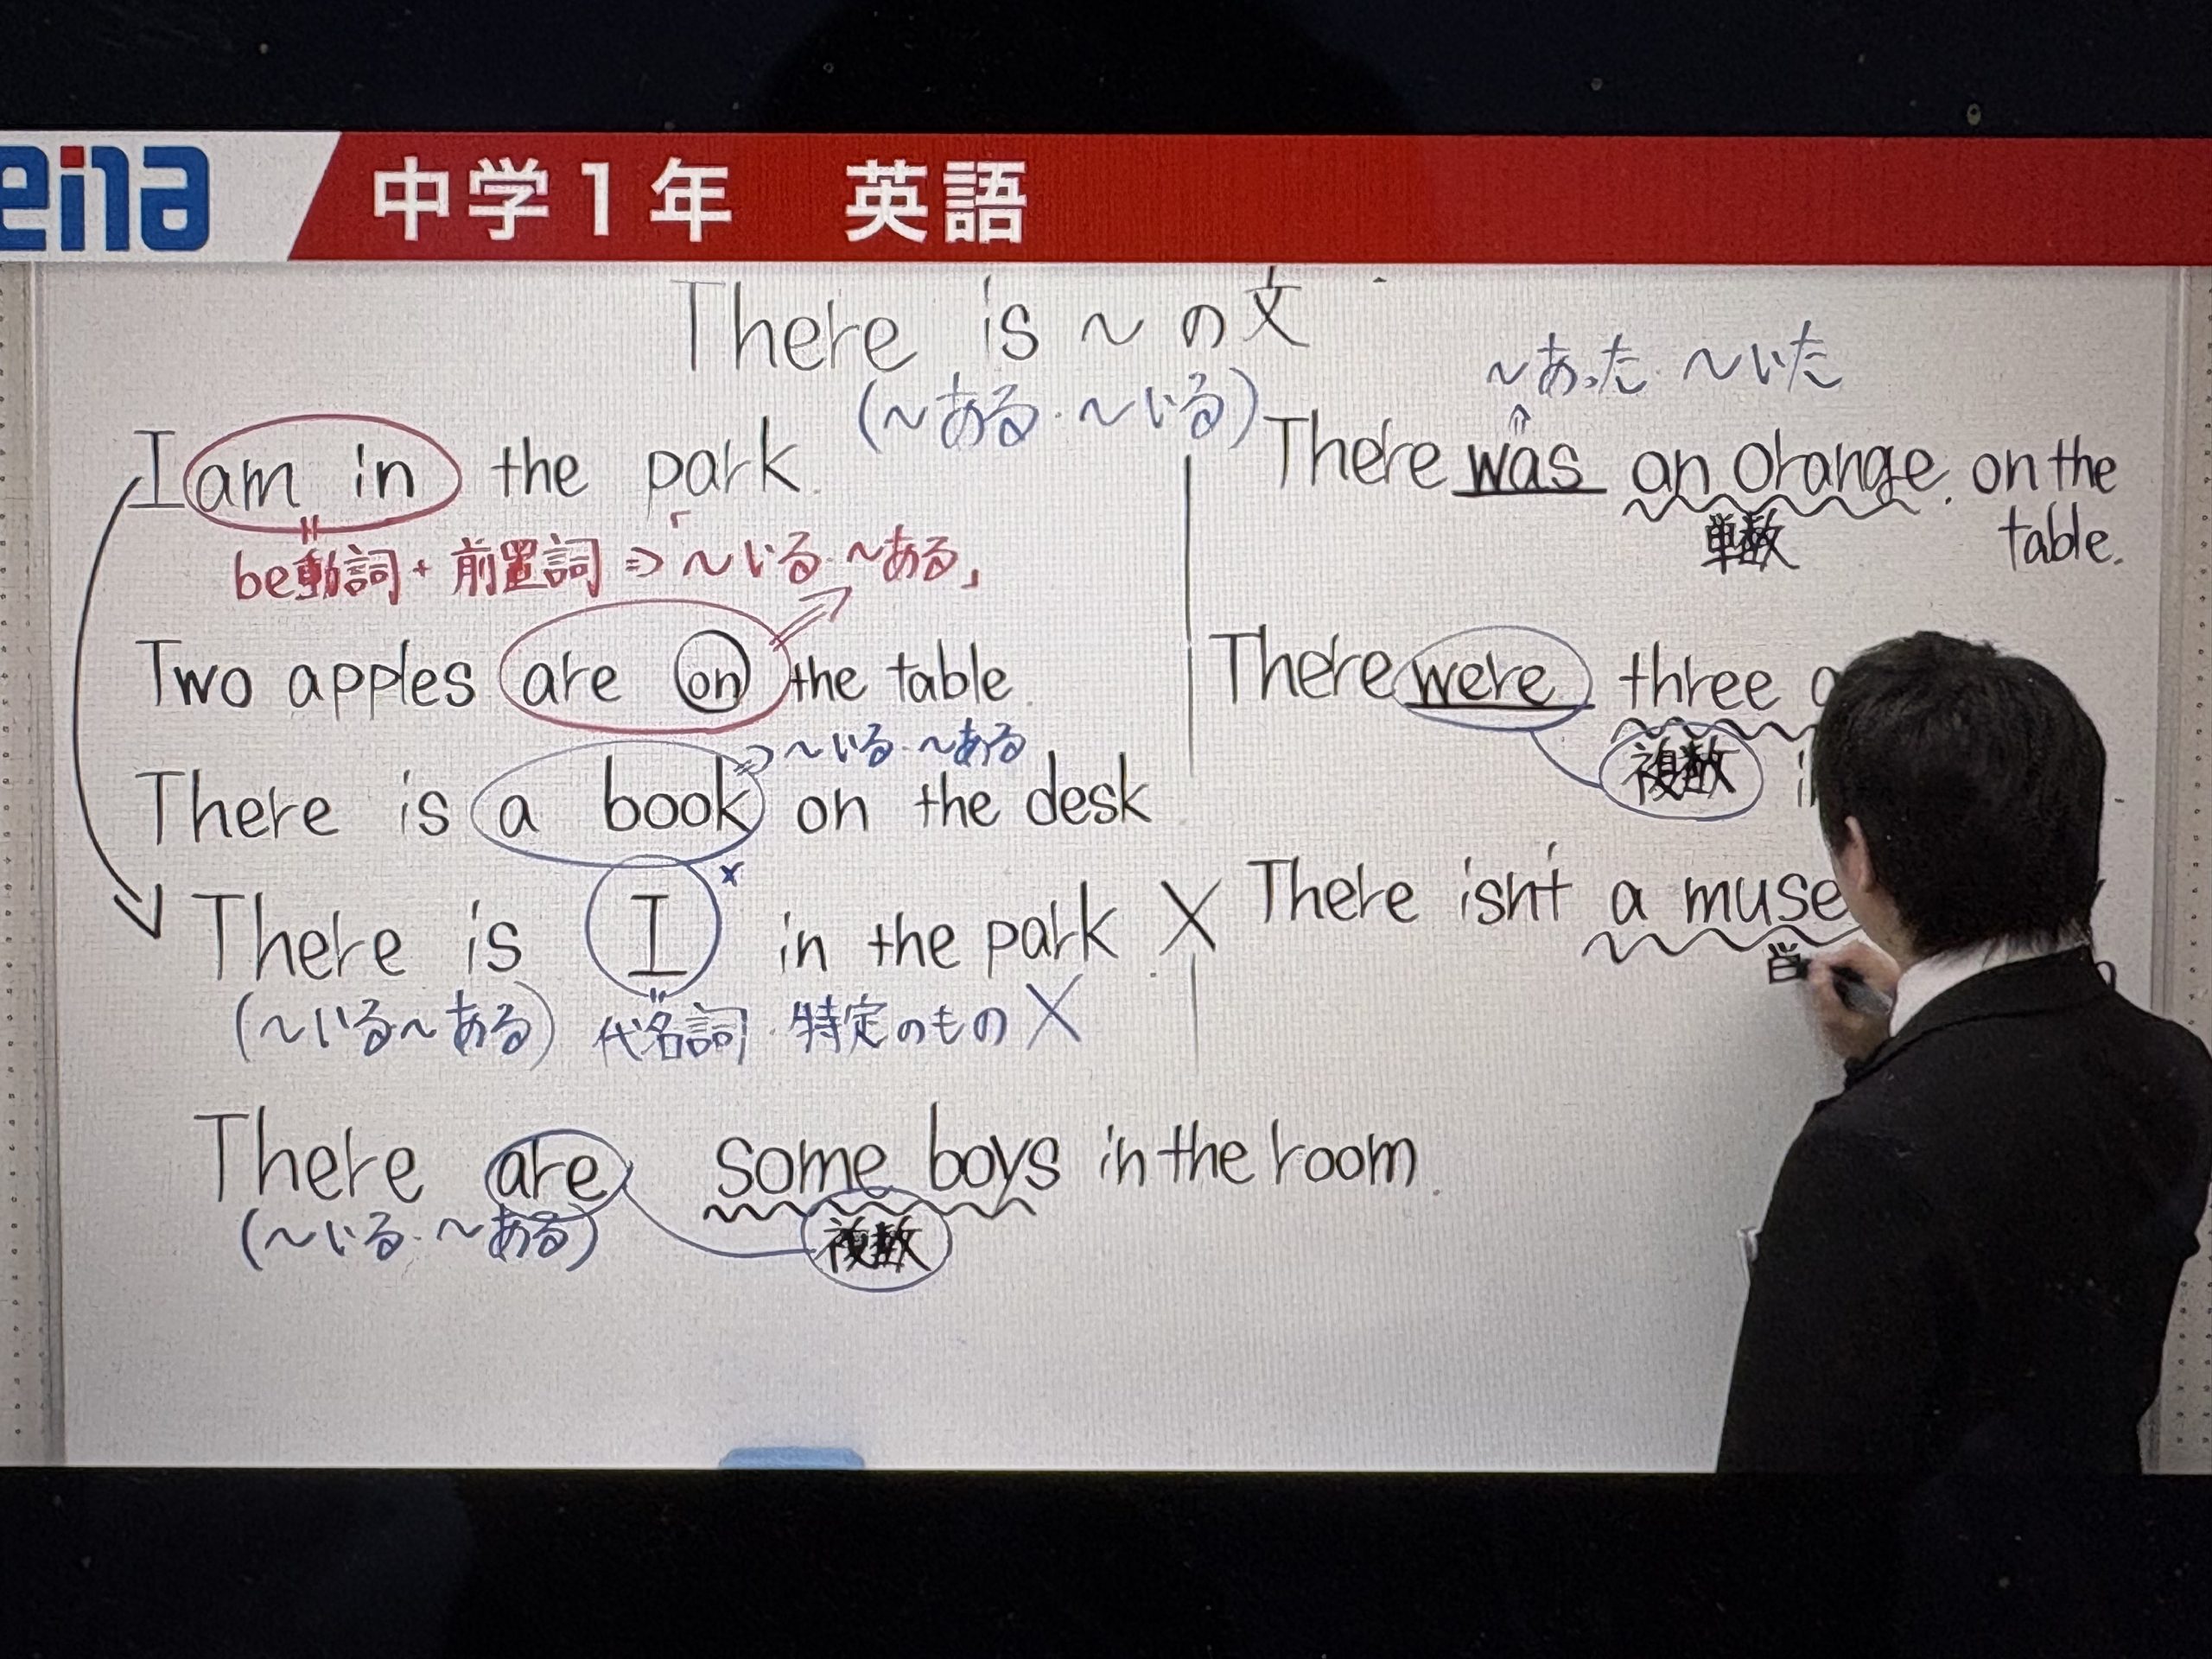 eina
中学1年 英語
There is ～ の文
(～ある・～いる)
I am in the park.
be動詞 + 前置詞 ⇒「～いる・～ある」
Two apples are on the table.
⇒ ～いる・～ある
There is a book on the desk
There is I in the park ×
(～いる～ある) 代名詞・特定のもの ×
There are some boys in the room.
(～いる・～ある) 複数
～あった・～いた
⇑
There was an orange on the
単数 table.
There were three
複数
There isn't a muse